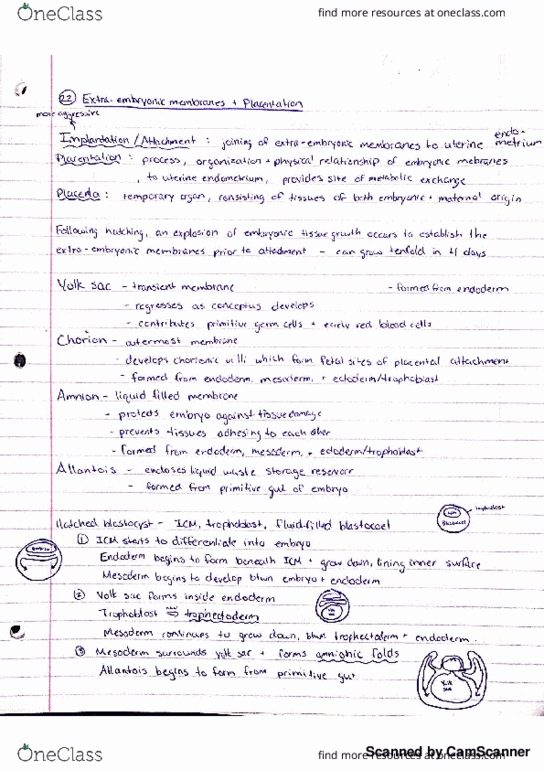 OneClass
find more resources at oneclass.com
22 Extra-embryonic membranes + Placentation
more aggressive
endo-
Implantation / Attachment : joining of extra-embryonic membranes to uterine metrium
Placentation : process, organization + physical relationship of embryonic mebranes
, to uterine endometrium, provides site of metabolic exchange
Placenta : temporary organ, consisting of tissues of both embryonic + maternal origin
Following hatching, an explosion of embryonic tissue growth occurs to establish the
extra-embryonic membranes prior to attachment - can grow tenfold in 4 days
Yolk sac - transient membrane - formed from endoderm
- regresses as conceptus develops
- contributes primitive germ cells + early red blood cells
Chorion - outermost membrane
- develops chorionic villi which form fetal sites of placental attachment
- formed from endoderm, mesoderm, + ectoderm/trophoblast
Amnion - liquid filled membrane
- protects embryo against tissue damage
- prevents tissues adhesing to each other
- formed from endoderm, mesoderm, + ectoderm/trophoblast
Allantois - encloses liquid waste storage reservoir
- formed from primitive gut of embryo
Hatched blastocyst - ICM, trophoblast, fluid-filled blastocoel
trophoblast
ICM
blastocoel
① ICM starts to differentiate into embryo
Endoderm begins to form beneath ICM + grow down, lining inner surface
Mesoderm begins to develop btwn embryo + endoderm
embryo
② Yolk sac forms inside endoderm
Trophoblast → trophectoderm
Mesoderm continues to grow down, btwn trophectoderm + endoderm.
③ Mesoderm surrounds yolk sac + forms amniotic folds
Allantois begins to form from primitive gut
Yolk
sac
OneClass
find more resources at oneclass.com
Scanned by CamScanner